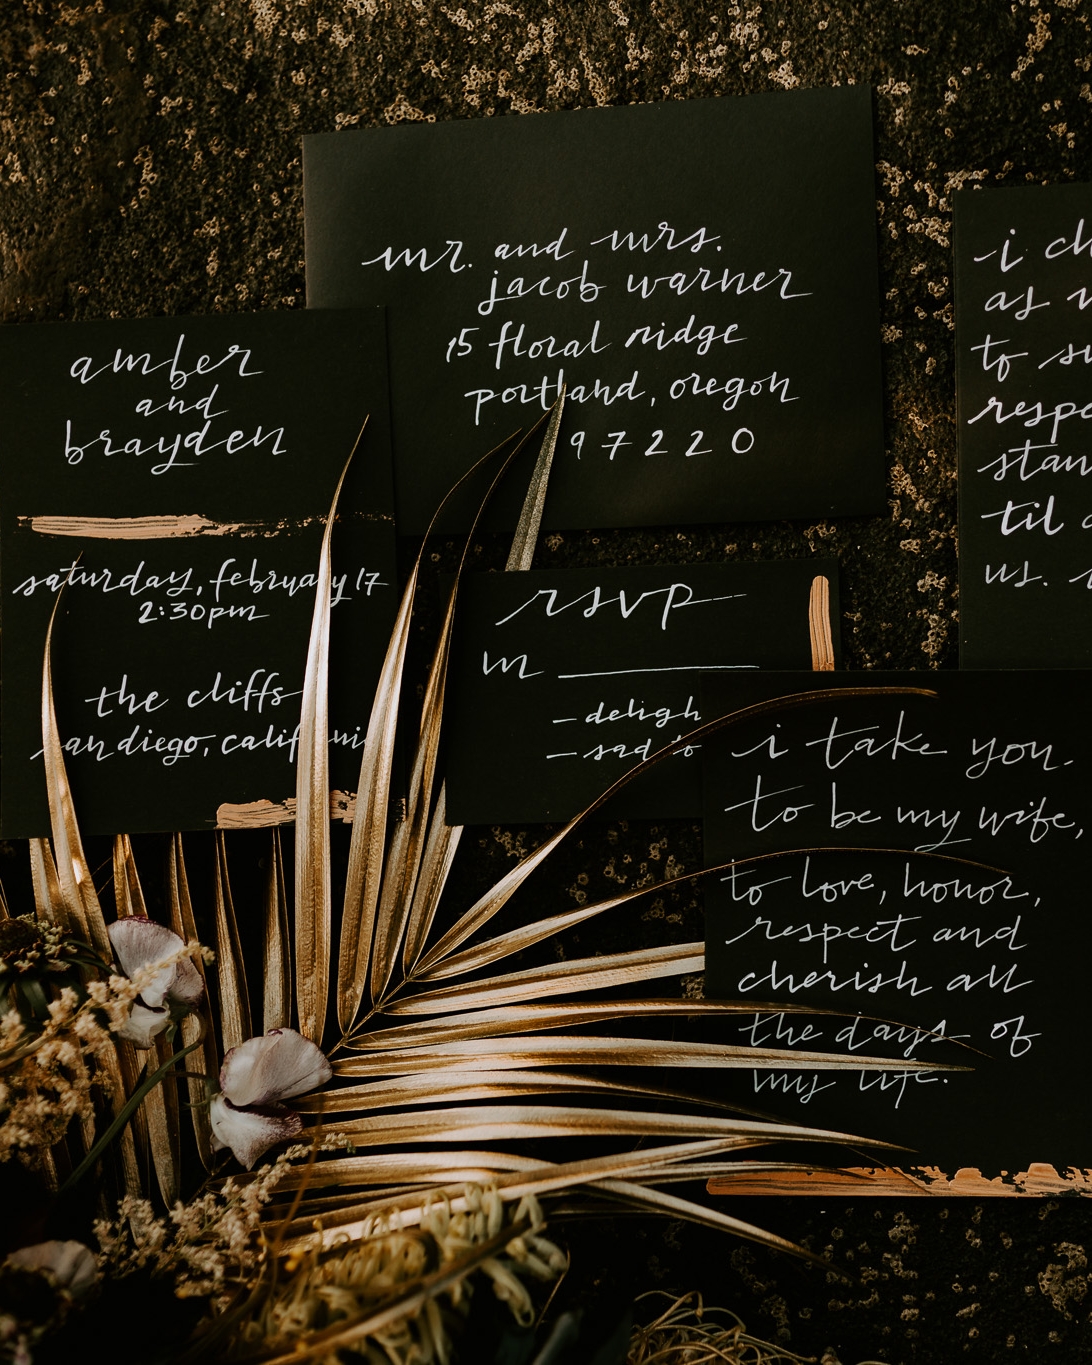 mr. and mrs.
jacob warner
15 floral ridge
portland, oregon
97220
amber
and
brayden
saturday, february 17
2:30pm
the cliffs
san diego, california
rsvp
m
deligh
sad to
i take you.
to be my wife,
to love, honor,
respect and
cherish all
the days of
my life.
i ch
as
to su
respe
stan
til d
us.